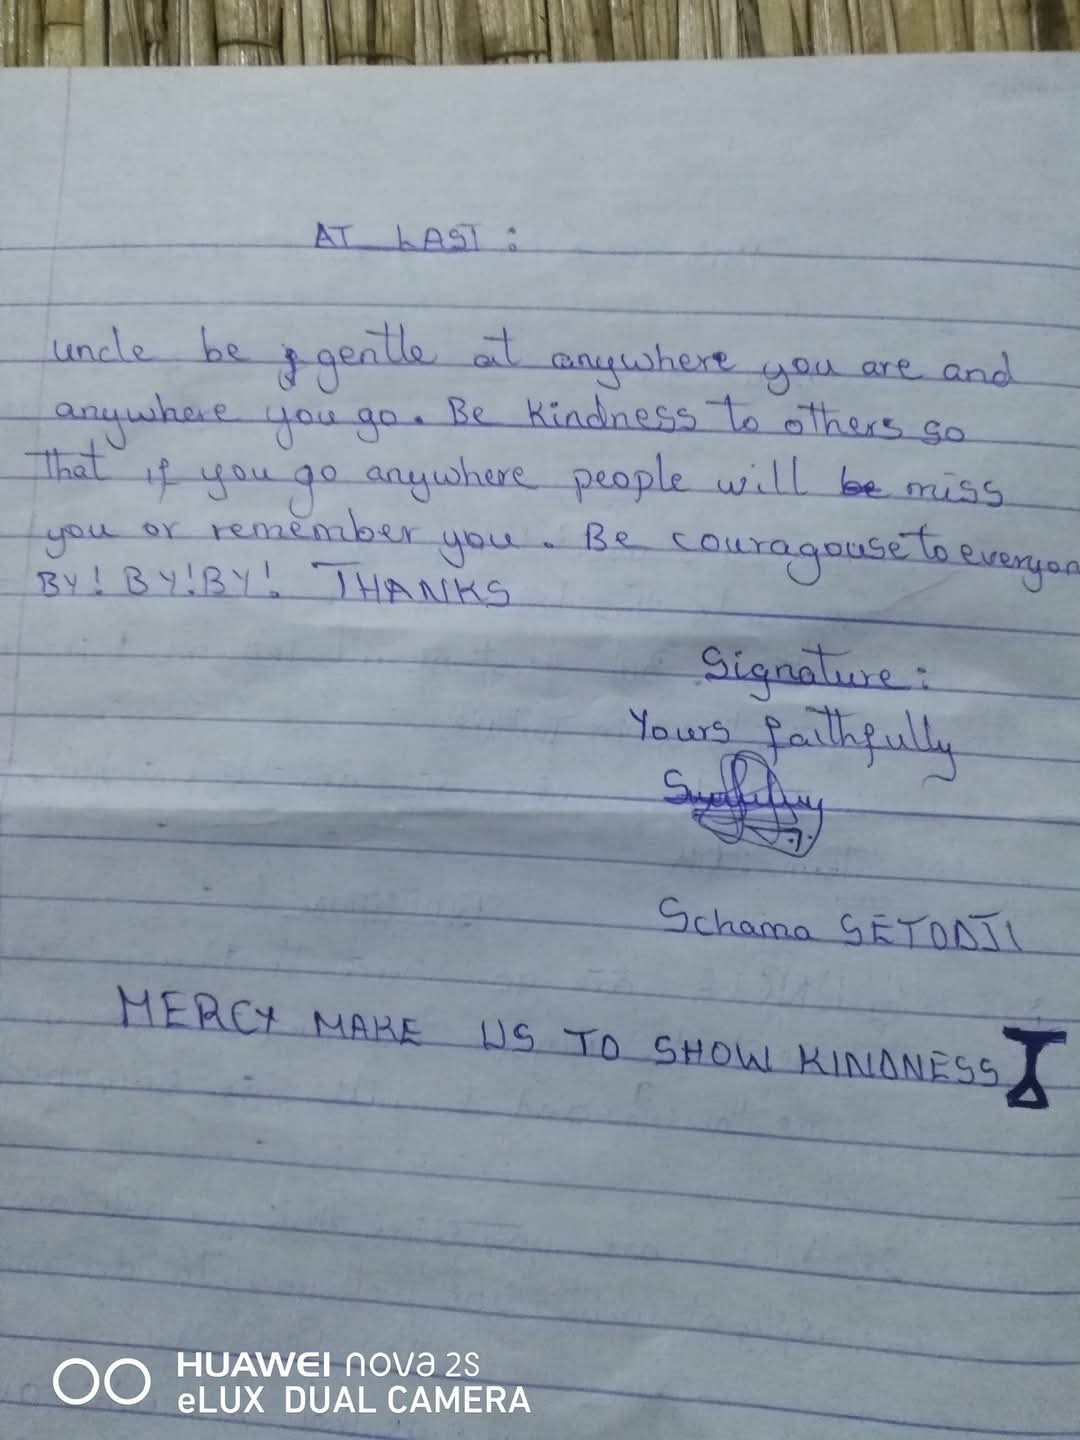 AT LAST:
uncle be gentle at anywhere you are and
anywhere you go. Be kindness to others so
that if you go anywhere people will be miss
you or remember you. Be couragouse to everyon
BY! BY! BY! THANKS
Signature:
Yours faithfully
Schama SETODJI
MERCY MAKE US TO SHOW KINDNESS
HUAWEI nova 2S
eLUX DUAL CAMERA